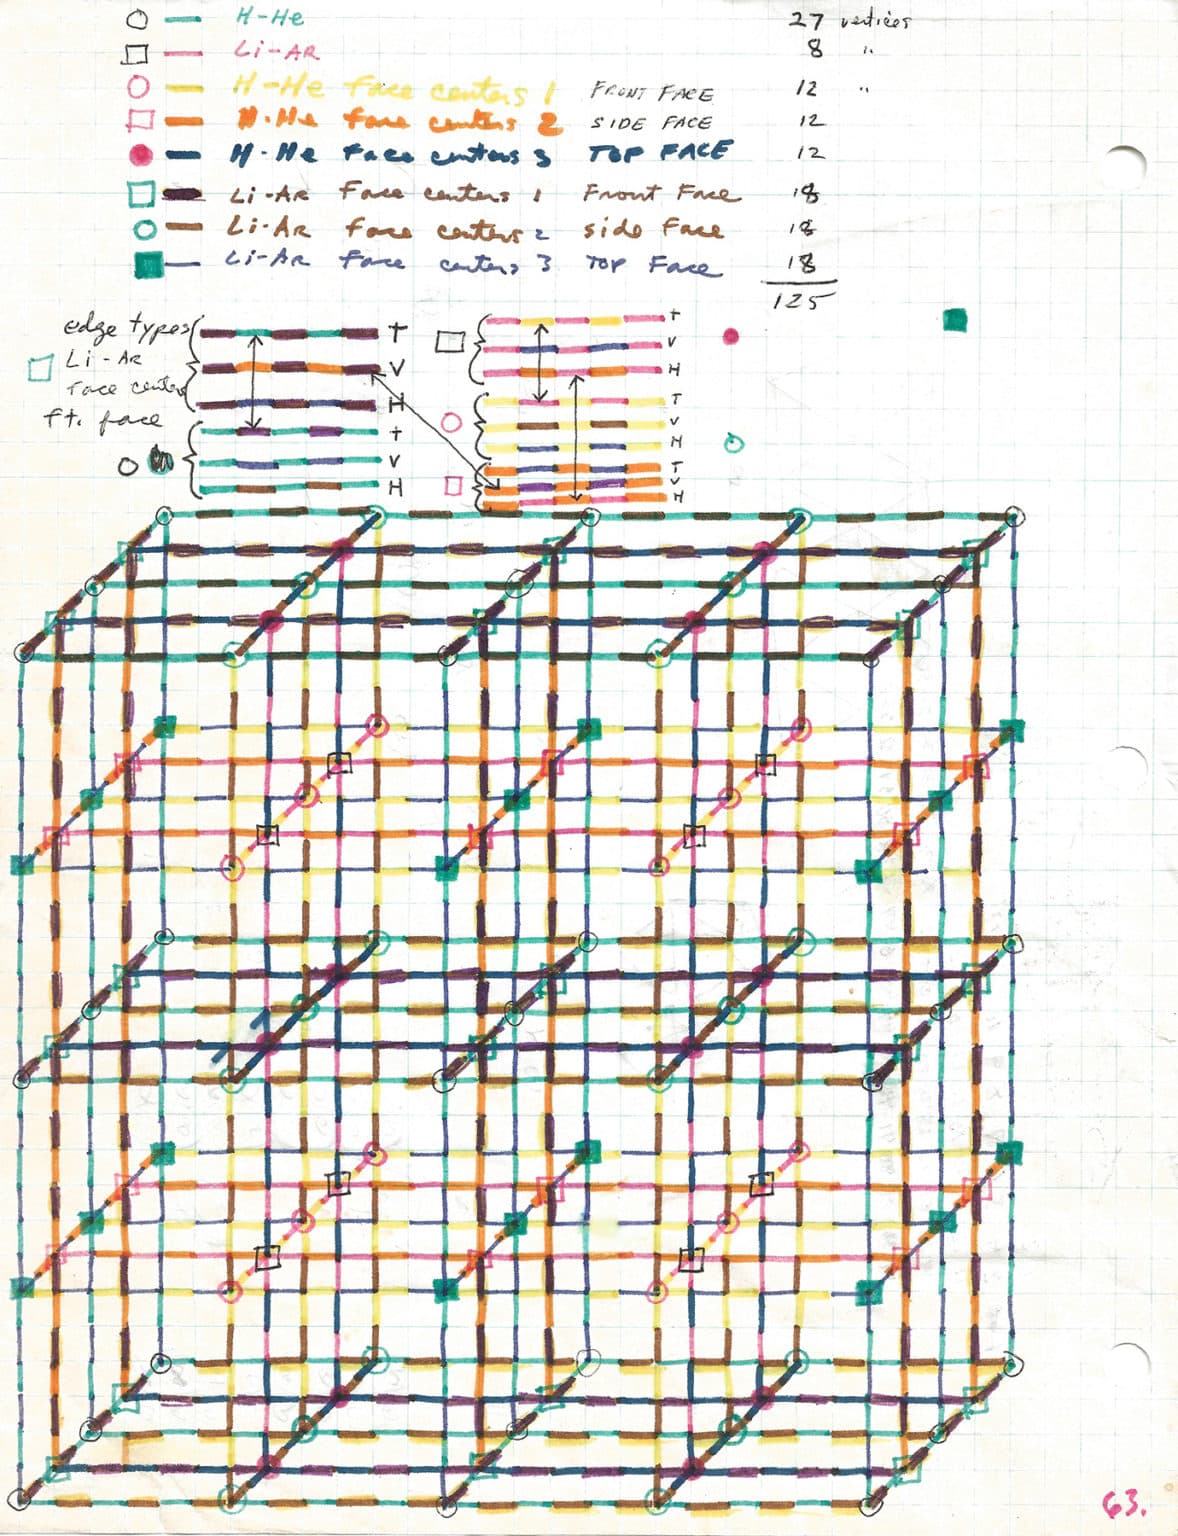 H-He 27 vertices
Li-AR 8 "
H-He face centers 1 FRONT FACE 12 "
H-He face centers 2 SIDE FACE 12
H-He Face centers 3 TOP FACE 12
Li-AR Face centers 1 Front Face 18
Li-AR face centers 2 side Face 18
Li-AR face centers 3 TOP Face 18
125
edge types T
Li-AR V
Face centers H
ft. face T
V
H
T
V
H
T
V
H
T
V
H
63.